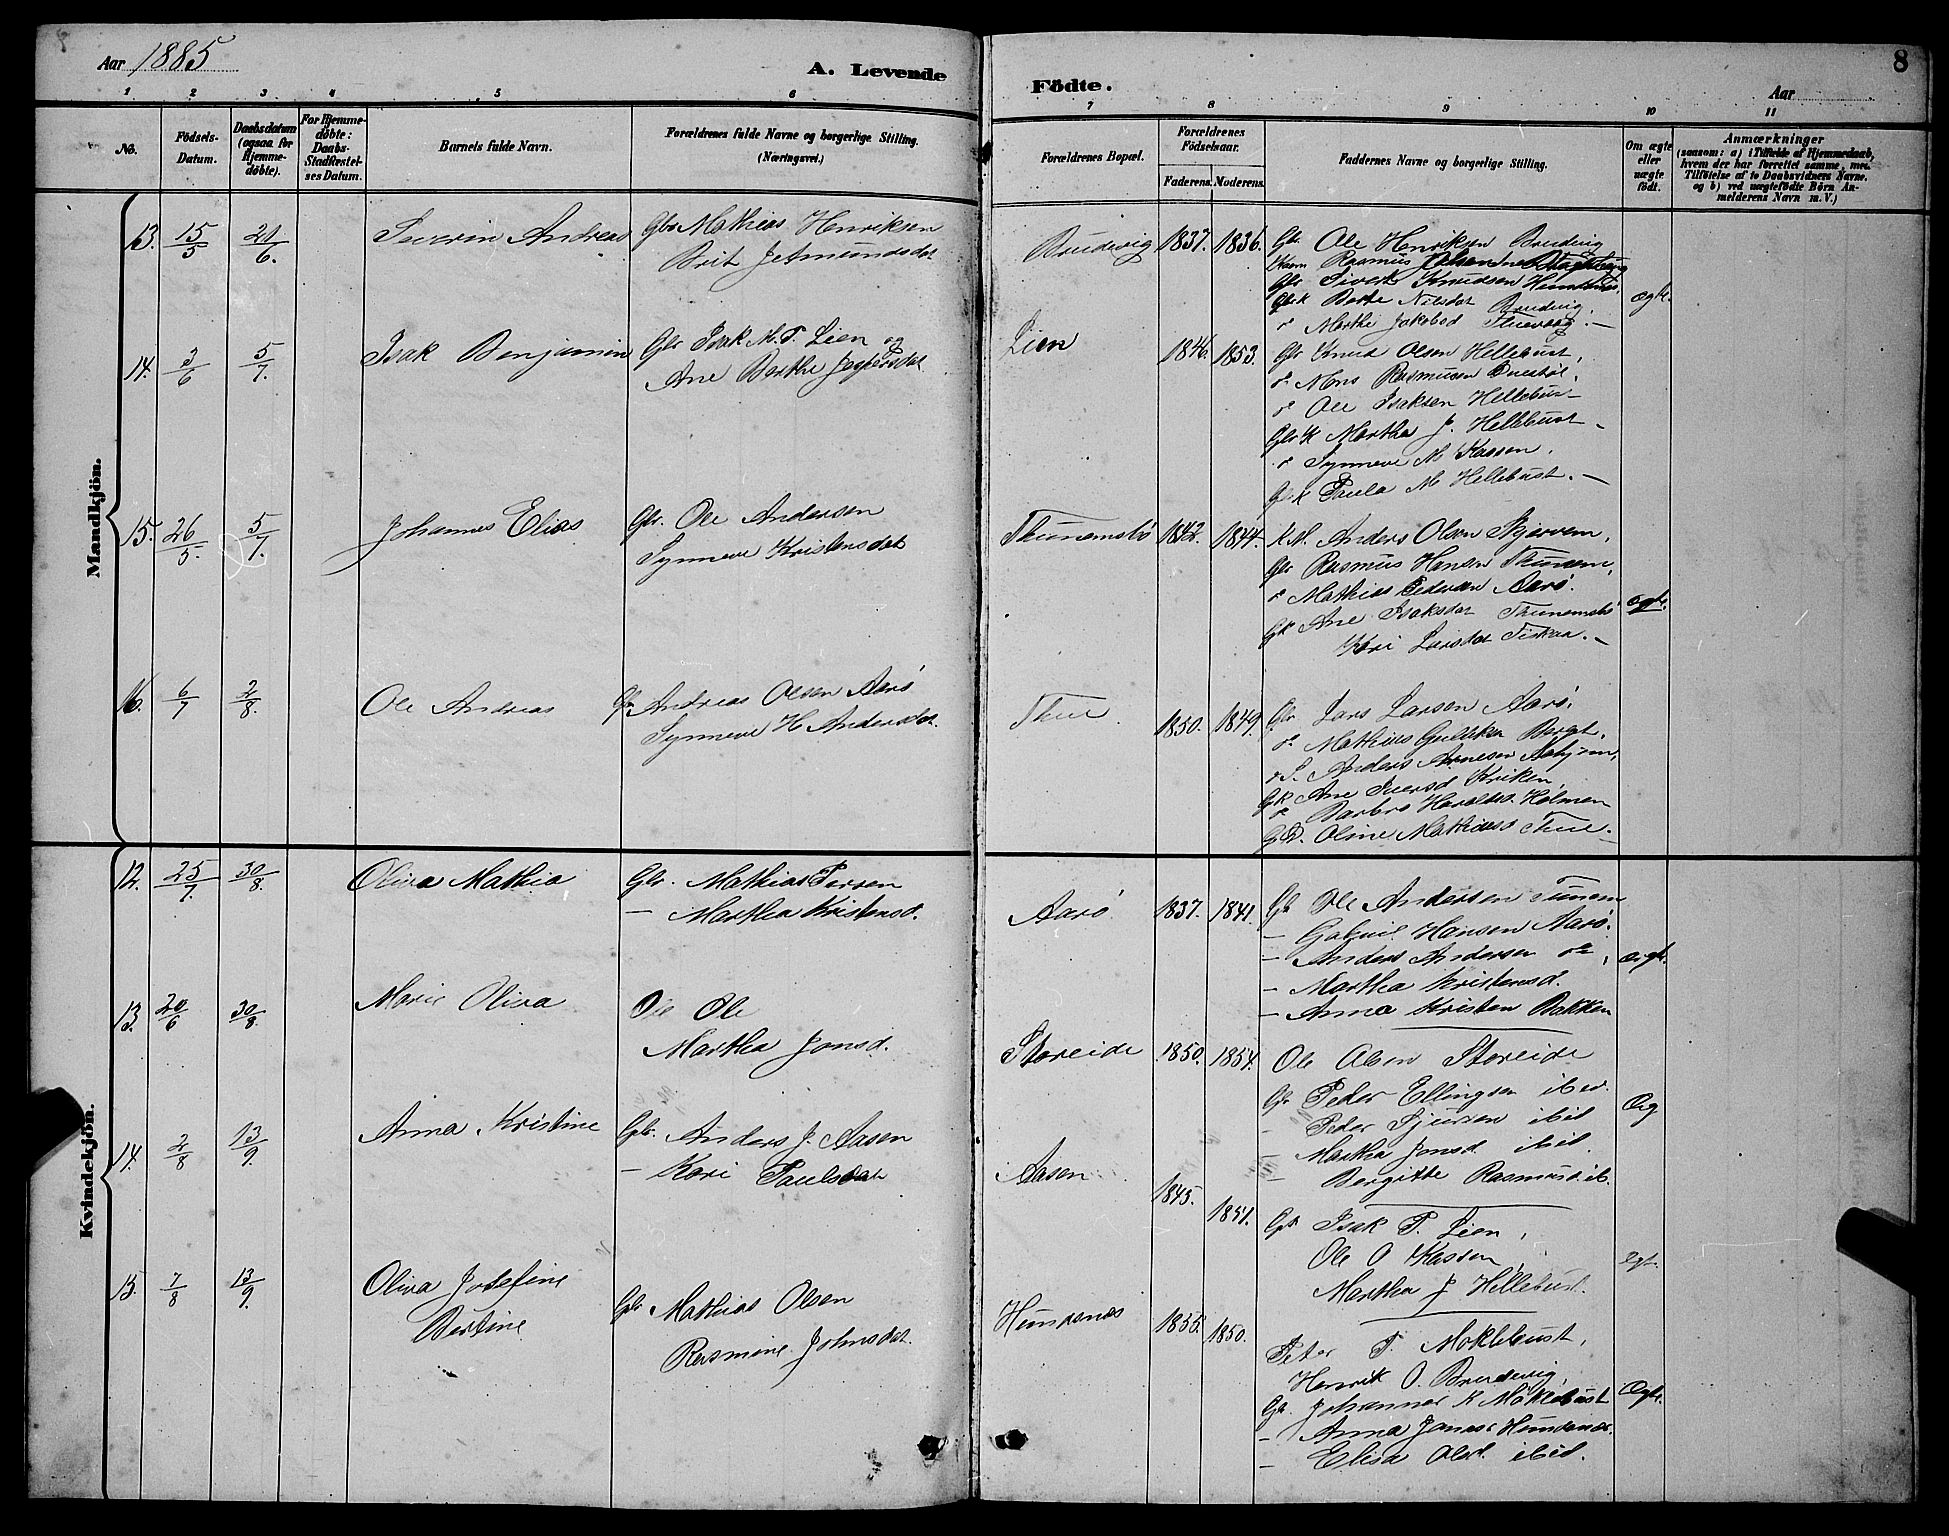 Aar 1885
A. Levende
Födte.
Aar
8
1 2 3 4 5 6 7 8 9 10 11
No.
Födsels-
Datum.
Daabsdatum
(ogsaa for
Hjemme-
döbte).
For Hjemme-
döbte:
Daabs-
Stadfæstel-
ses Datum.
Barnets fulde Navn.
Forældrenes fulde Navne og borgerlige Stilling.
(Næringsvei.)
Forældrenes Bopæl.
Forældrenes
Födselsaar.
Faderens. Moderens.
Faddernes Navne og borgerlige Stilling.
Om ægte
eller
uægte
födt.
Anmærkninger
(saasom: a) i Tilfælde af Hjemmedaab,
hvem der har forrettet samme, med
Tilföielse af to Daabsvidners Navne.
og b) ved uægtefödte Börn An-
melderens Navn m. V.)
Mandkjön.
13. 15/5 21/6. Severin Andreas
Gbr Mathias Henriksen
Brit Jetmundsdat
Brudevig 1837. 1836.
Gbr. Ole Henriksen Brudvig
Rasmus
Gbr Sivert Knudsen Hundsnes.
Gbrk Berte Nilsdat Brudvig.
Marthe Jakobsd
ægte.
14. 3/6 5/7. Isak Benjamin
Gbr Isak M. T. Lien og
Ane Berthe Jespersdat
Lien 1846. 1853.
Gbr Knud Olsen Hellebust,
do Mons Rasmusen
do Ole Isaksen Hellebust
Gbr K Martha J. Hellebust
do Synneve M Kassen.
G K Paula M Hellebust.
15. 26/5. 5/7. Johannes Elias
Gbr. Ole Andersen
Synneve Kristensdat
Thunemsbö 1842. 1844.
K. M. Anders Olsen Skjervem,
Gbr Rasmus Hansen Thunem,
do Mathias Pedersen Aarö.
Gk Ane Isaksdat Thunemsbö
Kari Larsdat Fiskaa.
ægte.
16. 6/7 2/8. Ole Andreas
Gbr Andreas Olsen Aarö
Synneve H Andersdat.
Thue. 1850. 1849.
Gbr Lars Larsen Aarö,
do Mathias Gulleksen
Anders Arnesen
Gk Ane Iversd Kriken
do Barbro Haraldsd. Holmen
Oline Mathiasd Thue.
Kvindekjön.
12. 25/7. 30/8. Oliva Mathia
Gbr. Mathias Persen
— Martha Kristensd.
Aarö. 1837. 1841.
Gb Ole Andersen Tunem
— Gabriel Hansen Aarö.
— Anders Andersen do,
— Martha Kristensd.
— Anna Kristen Bakken
ægt.
13. 20/6 30/8. Marie Oliva
Ole Ole
Martha Jonsd.
Storeide 1850. 1854.
Ole Olsen Storeide
Gb Peder Ellingsen ibid.
— Peder Sjursen ibid
— Martha Jonsd ibid.
— Bergitte Rasmusd. ib.
Æg
14. 2/8 13/9. Anna Kristine
Gbr. Anders J. Aasen
— Kari Paulsdat
Aasen 1845. 1851.
Gb Isak T. Lien,
Ole O Kassen,
Martha J Hellebust.
ægt.
15. 7/8 13/9. Oliva Josefine
Bertine
Gbr Mathias Olsen
Rasmine Johnsdat.
Hundsnæs 1855. 1850.
Peter T. Moklebust,
Henrik O. Brudevig,
Gb. Johannes K Möklebust
— Anna Jonasd Hundsnæs.
— Elisa Olsd. ibid.
Ægte.